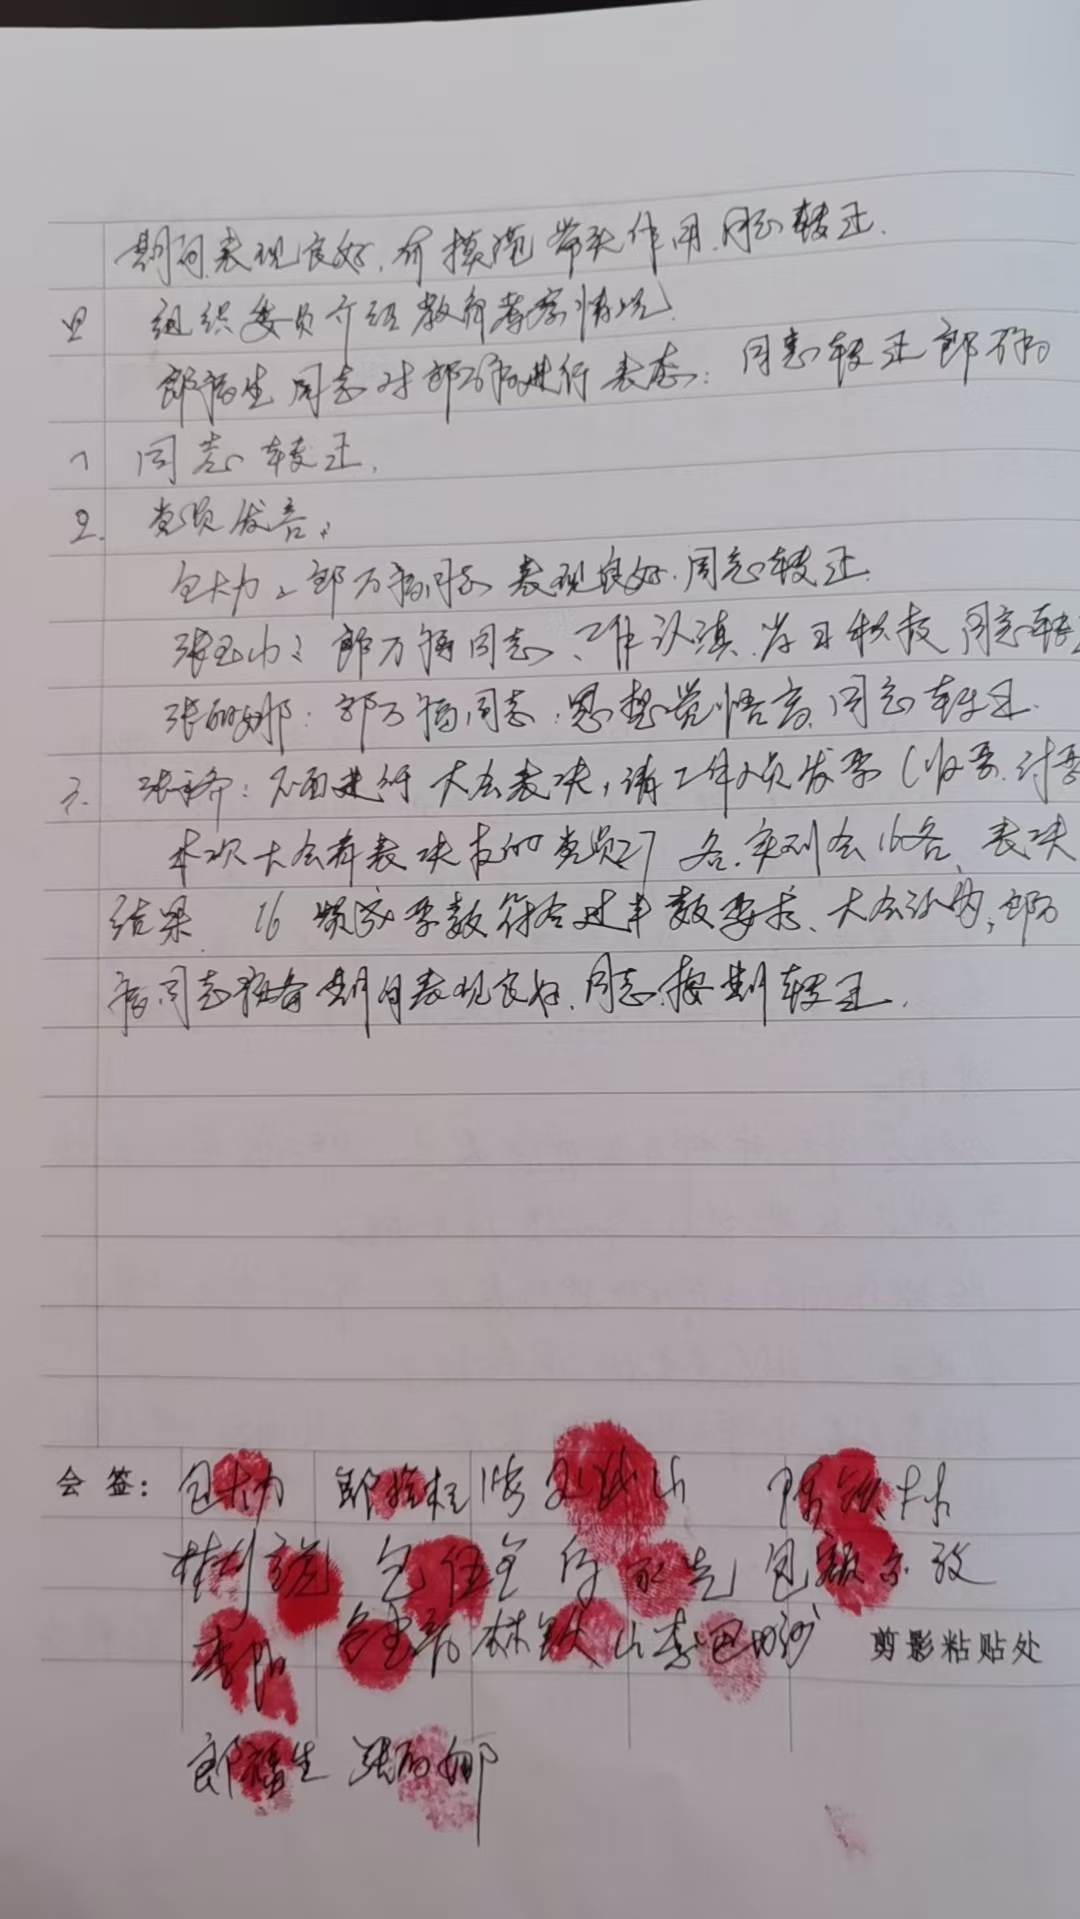 期间表现良好,有模范带头作用,同志转正.
四 组织委员介绍教育考察情况.
郎福生同志对郎万福进行表态: 同志转正郎万福
1 同志转正.
2. 党员发言:
包大力: 郎万福同志 表现良好.同志转正.
张玉山: 郎万福同志、工作认真.学习积极 同志转正
张丽娜: 郎万福同志:思想觉悟高,同志转正.
3. 下面进行大会表决,请工作人员发票(收票.计票
本次大会有表决权的党员27名.实到会16名、表决
结果 16 赞成票数符合过半数要求、大会认为,郎万
福同志预备期间表现良好.同志按期转正.
会 签: 包大力 郎 张玉山 林
包 包
李阳 林铁山 李巴 剪影粘贴处
郎福生 张丽娜